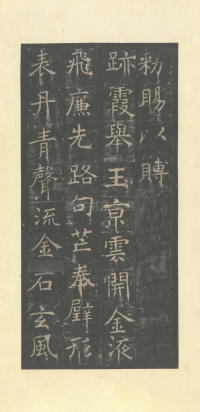 勑賜以賻
跡霞舉王京雲開金液
飛廉先路句芒奉璧形
表丹青聲流金石玄風